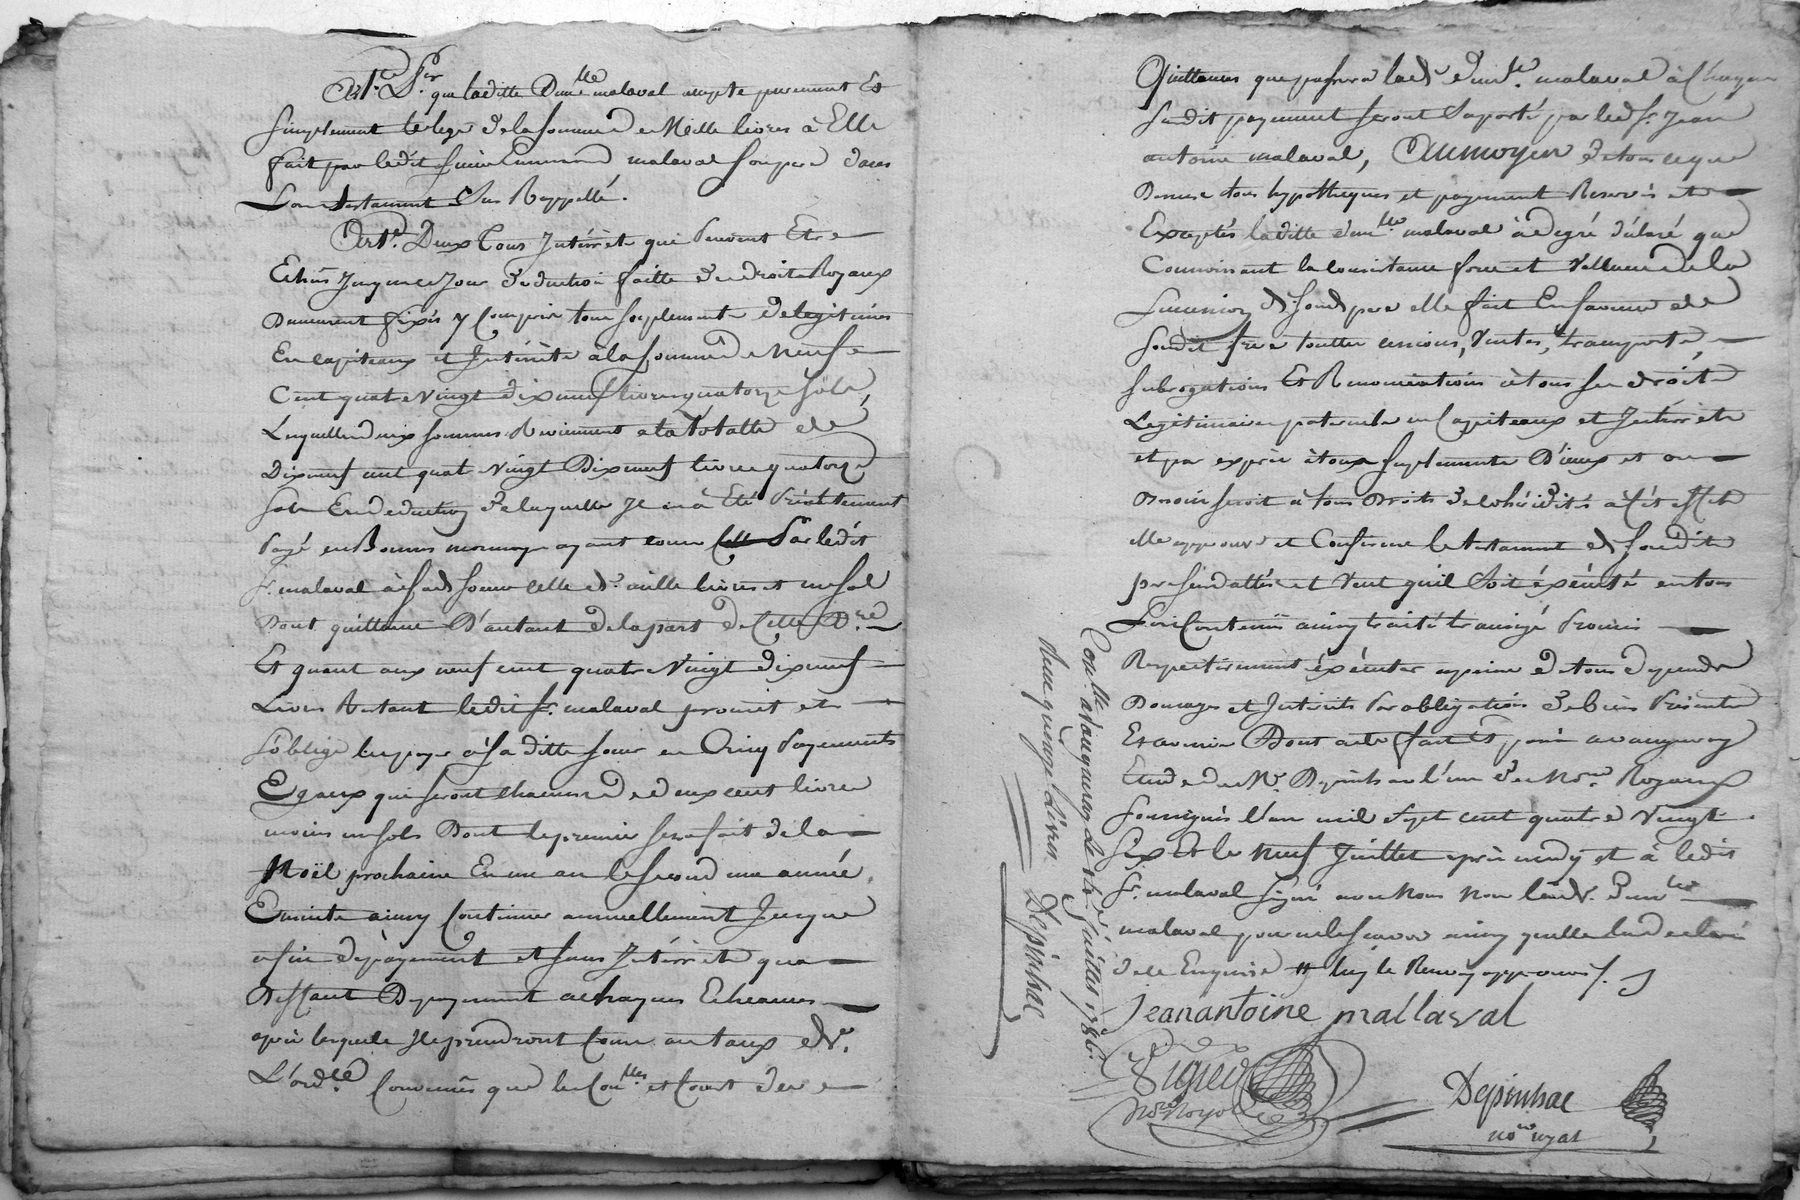 Art. 1.er que laditte Dem.lle malaval accepte purement Et
Simplement le legs de la somme de Mille livres à Elle
fait par ledit feu malaval Son pere dans
Son testament Sus Rappellé.
Art.e Deux Tous Intérrèts qui peuvent Etre
Echus Jusqu'a ce Jour deduction faitte des droits Royaux
Demeurent fixés y Compris tous soeplements de legitimes
En capiteaux et Intérèts à la somme de Neuf
Cent quatre vingt dix neuf livres quatorze sols,
Lesquelles deux sommes Reviennent a la totalle de
Dixneuf cent quatre vingt Dix neuf livres quatorze
Sols En deduction de laquelle Il en à Eté présentement
payé en Bonnes monnoyes ayant cours par ledit
s.r malaval à sad. soeur celle de mille livres et un sol
Dont quittance D'autant de la part de Cette D.re
Et quant aux neuf cent quatre vingt dix neuf
Livres Restant ledit s.r malaval promet et
S'oblige les payer à sa ditte soeur en Cinq payements
Egaux qui seront chacun de deux cent livres
moins un sols Dont le premier sera fait de la
Noël prochaine En un an le second une année
Ensuite ainsy Continuer annuellement Jusques
a fin de payement et sans Intérrèts qu'a
Deffaut De payement a chaques Echeances
après lesquels Ils prendront Cours au taux de
L'ord.ce Convenus que les Con.lles et Cout des
Quittances que passera lad. dem.lle malaval à chaque
Susdit payement seront Suporté par led. s.r Jean
antoine malaval, Aumoyen de tous ce que
Dessus tous hypotheques et payement Reservés et
Exceptés laditte dem.lle malaval à de gré déclaré que
Connoissant la consistance force et valleur de la
Succession de son d. pere elle fait En faveur de
Soudit frere touttes cessions, Ventes, transports,
Subrogations Et Renonciations à tous ses droits
Legitimaires paternels en Capiteaux et Intérrèts
et par exprès à tous suplements D'iceux et ou
Besoin seroit à tous Droits de cohéridités à Cèt effet
elle approuve et Confirme le testament de Soudit
pere et veut qu'il Soit éxécuté en tous
Son Contenu ainsy traité transigé Promis
Respectivement éxécuter apeine de tous depends
Domages et Intérèts Par obligations de biens présents
Et avenir Dont acte fait Et passé a
Etude de M.e Depinhac l'un des No.res Royaux
Soussignés L'an mil Sept cent quatre Vingt
Six Et le Neuf Juillet après midy et à ledit
s.r malaval signé avec Nous Non lad. dem.lle
malaval pour ne Scavoir ainsy qu'elle la declaré
de ce Enquise # le Renvoy approuvé.
Con.lle a le Juillet 1786.
Reçu quinze Livres. Depinhac
Jean antoine mallaval
Vigier
No.re Royal
Depinhac
no.re royal